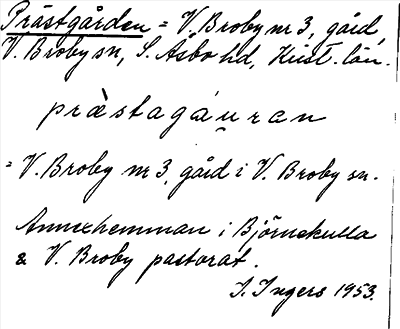 Prästgården = V. Broby nr 3, gård,
V. Broby sn, S. Åsbo hd, Krist. län.
prä̀stagáu̯ren
= V. Broby nr 3, gård i V. Broby sn.
Annexhemman i Björnekulla
& V. Broby pastorat.
I. Ingers 1953.